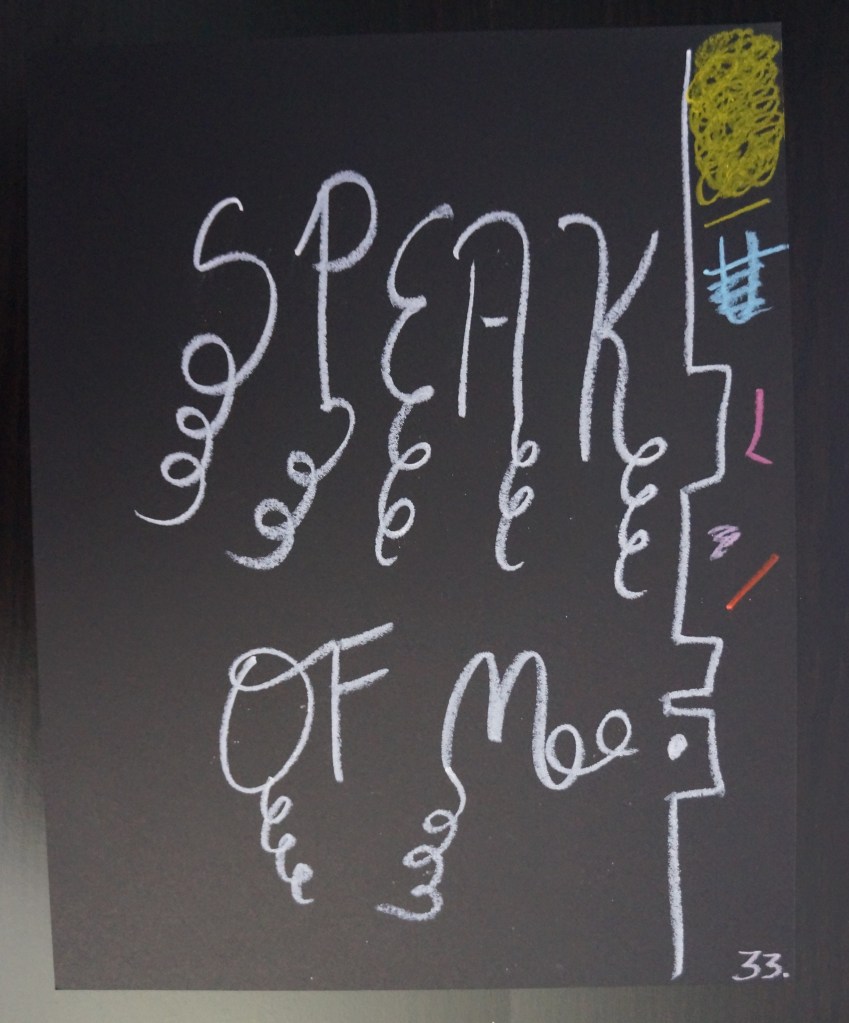 SPEAK
OF Me
33.